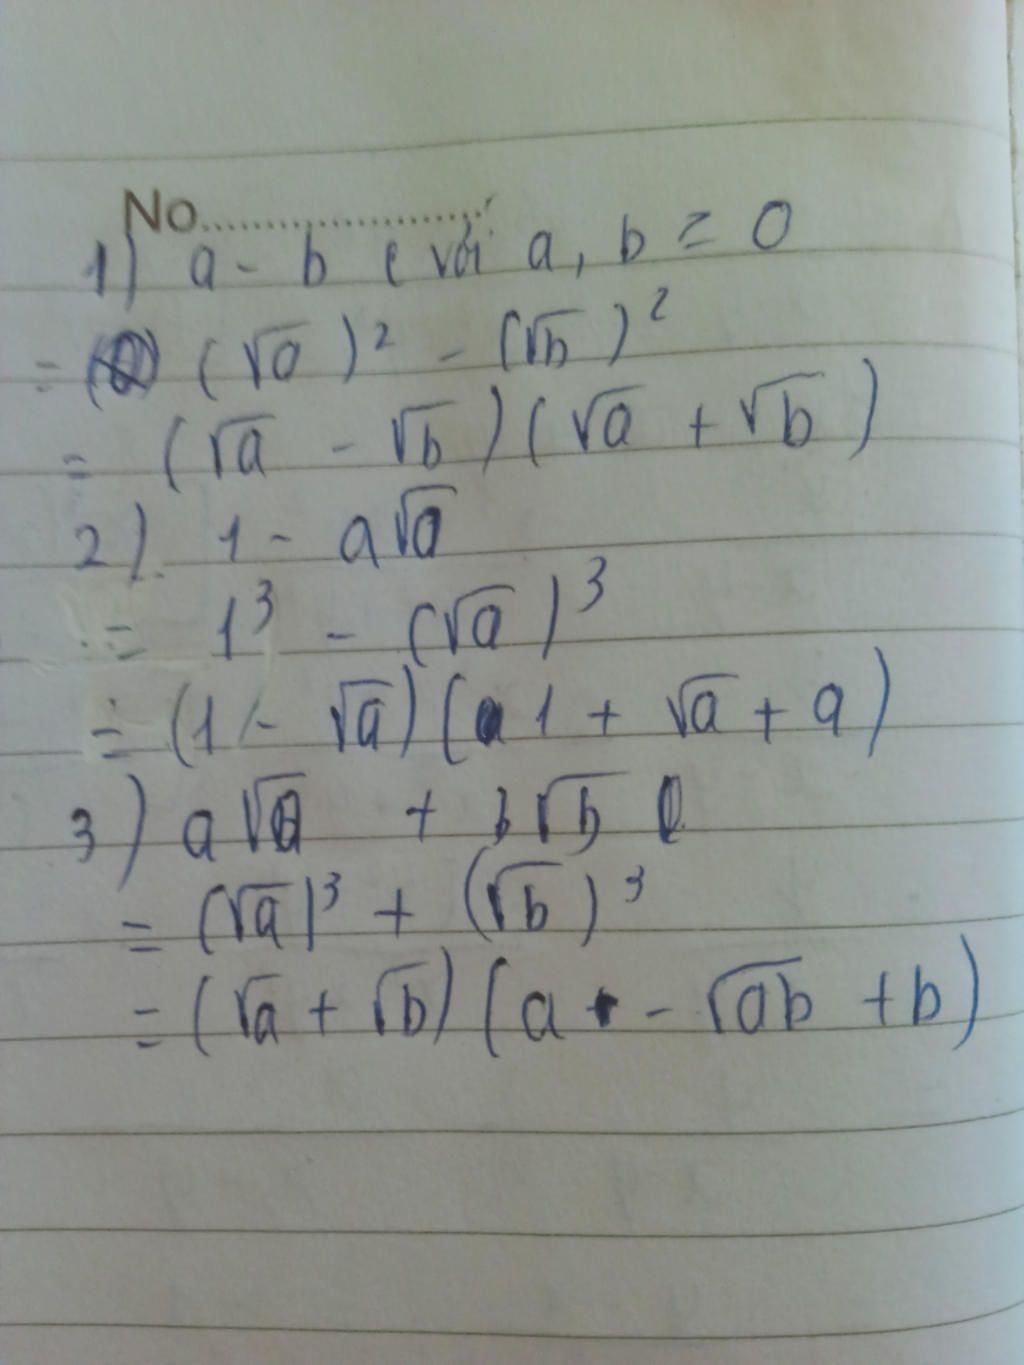 No.
1) a - b ( với a, b = 0
= (√a)² - (√b)²
= (√a - √b)(√a + √b)
2) 1 - a√a
= 1³ - (√a)³
= (1 - √a)(1 + √a + a)
3) a√a + b√b
= (√a)³ + (√b)³
= (√a + √b)(a - √ab + b)